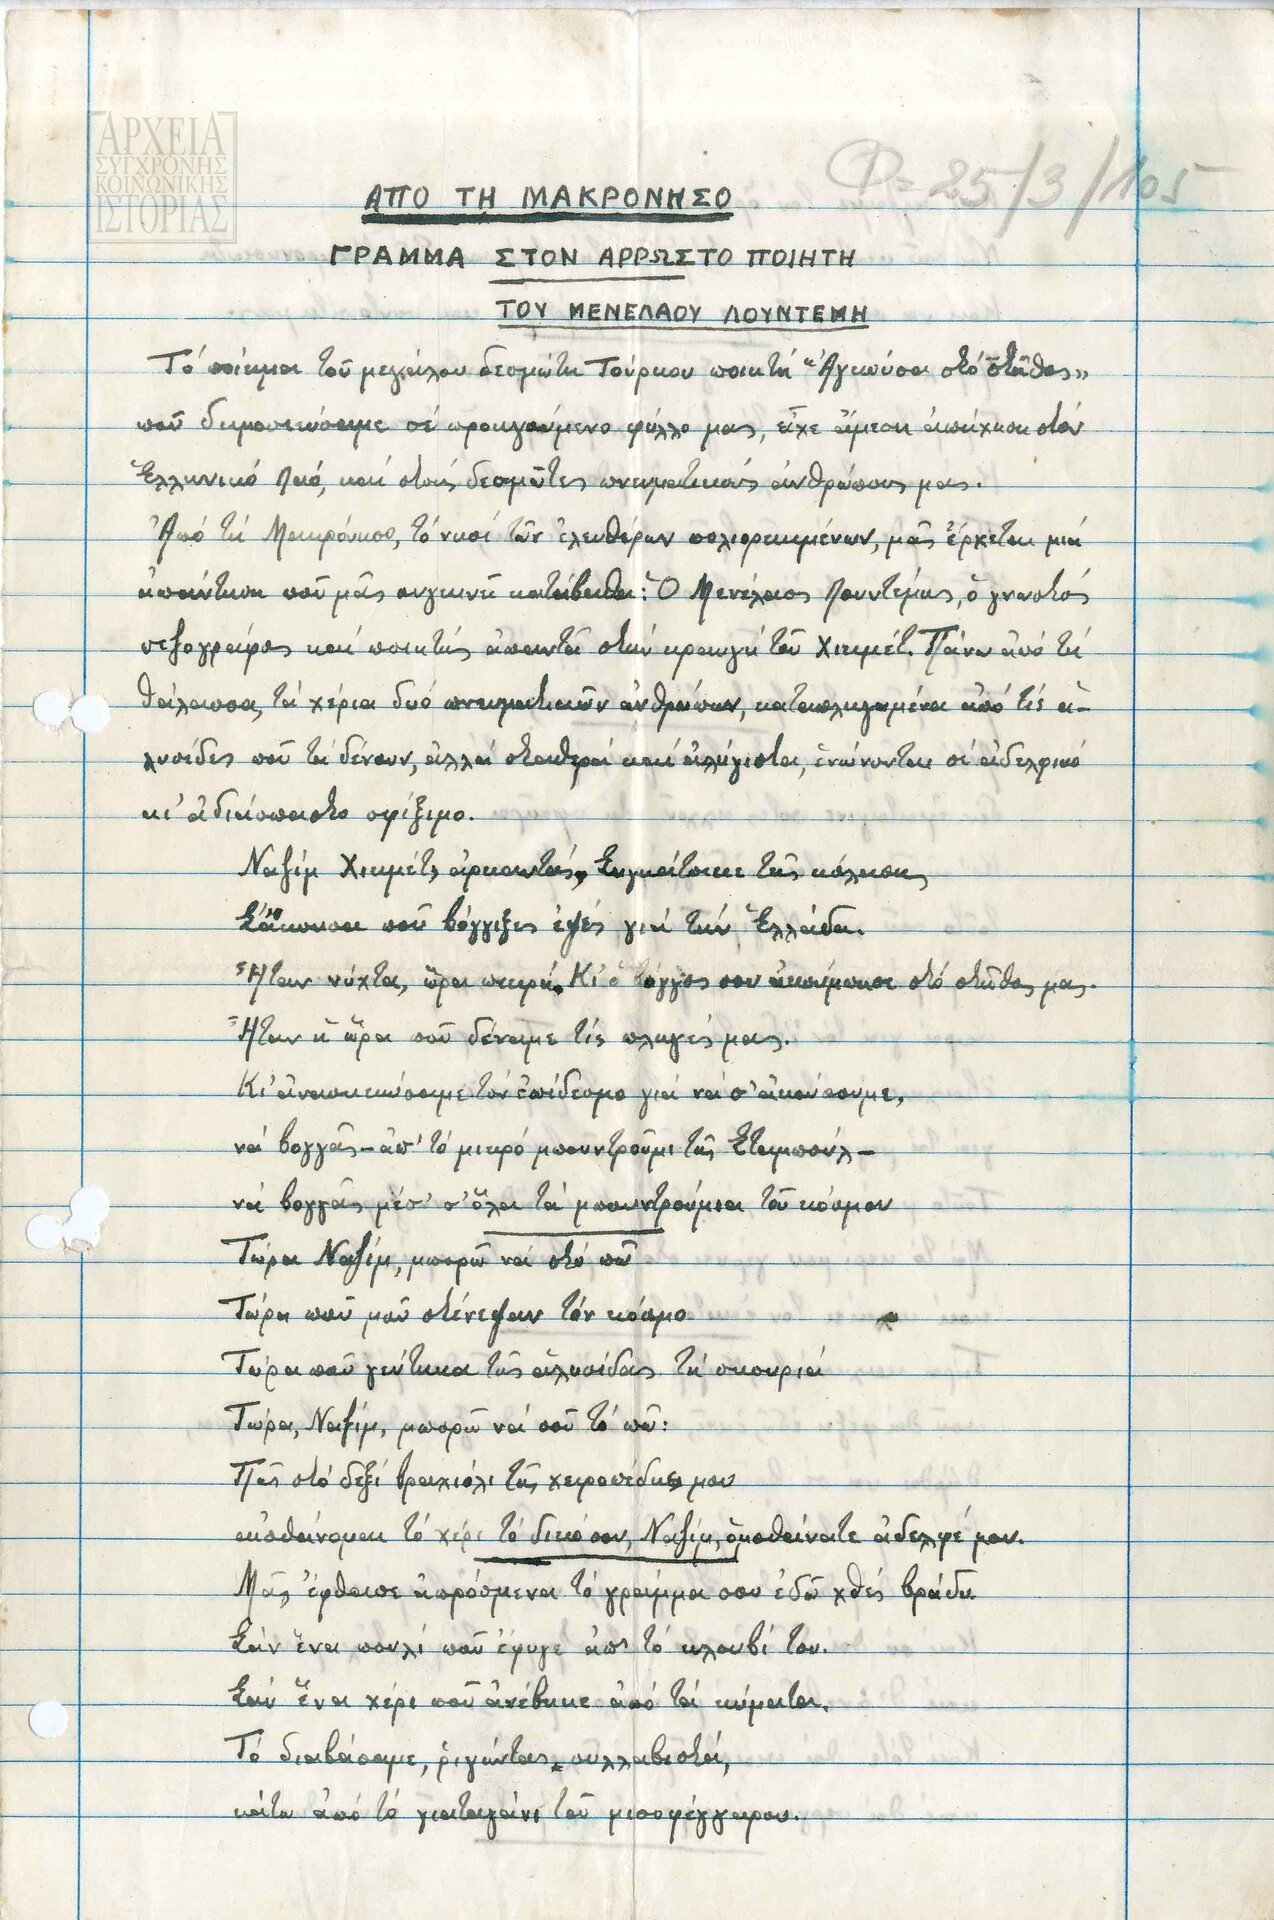 ΑΡΧΕΙΑ
ΣΥΓΧΡΟΝΗΣ
ΚΟΙΝΩΝΙΚΗΣ
ΙΣΤΟΡΙΑΣ
Φ=25/3/105
ΑΠΟ ΤΗ ΜΑΚΡΟΝΗΣΟ
ΓΡΑΜΜΑ ΣΤΟΝ ΑΡΡΩΣΤΟ ΠΟΙΗΤΗ
ΤΟΥ ΜΕΝΕΛΑΟΥ ΛΟΥΝΤΕΜΗ
Τό ποίημα τοῦ μεγάλου δεσμώτη Τούρκου ποιητή "Ἀγκούσα στό στῆθος"
πού δημοσιεύσαμε σέ προηγούμενο φύλλο μας, εἶχε ἄμεση ἀπήχηση στόν
Ἑλληνικό λαό, καί στούς δεσμῶτες πνευματικούς ἀνθρώπους μας.
Ἀπό τή Μακρόνησο, τό νησί τῶν ἐλευθέρων πολιορκημένων, μᾶς ἔρχεται μιά
ἀπάντηση πού μᾶς συγκινεῖ κατάβαθα: Ὁ Μενέλαος Λουντέμης, ὁ γνωστός
πεζογράφος καί ποιητής ἀπαντᾶ στήν κραυγή τοῦ Χικμέτ. Πάνω ἀπό τή
θάλασσα, τά χέρια δυό πνευματικῶν ἀνθρώπων, καταπληγωμένα ἀπό τίς ἁ-
λυσίδες πού τά δένουν, ἀλλά σταθερά καί ἀλύγιστα, ἑνώνονται σέ ἀδελφικό
κι' ἀδιάσπαστο σφίξιμο.
Ναζίμ Χικμέτ, ἀρχοντάς, Συγκάτοικε τῆς κόλασης
Σἄκουσα πού βόγγιξες ἐψές γιά τήν Ἑλλάδα.
Ἦταν νύχτα, ὥρα πικρή. Κι ὁ βόγγος σου ἀκούμπησε στό στῆθος μας.
Ἦταν ἡ ὥρα πού δέναμε τίς πληγές μας.
Κι' ἀνασηκώσαμε τόν ἐπίδεσμο γιά νά σ' ἀκούσουμε,
νά βογγᾶς – ἀπ' τό μικρό μπουντρούμι τῆς Σταμπούλ –
νά βογγᾶς μέσ' σ' ὅλα τά μπουντρούμια τοῦ κόσμου
Τώρα Ναζίμ, μπορῶ νά στό πῶ
Τώρα πού μοῦ στένεψαν τόν κόσμο
Τώρα πού γεύτηκα τῆς ἁλυσίδας τή σκουριά
Τώρα, Ναζίμ, μπορῶ νά σοῦ τό πῶ:
Πώς στό δεξί βραχιόλι τῆς χειροπέδης μου
αἰσθάνομαι τό χέρι τό δικό σου, Ναζίμ, ὁμοθάνατε ἀδελφέ μου.
Μᾶς ἔφθασε ἀπρόσμενα τό γράμμα σου ἐδῶ χθές βράδυ.
Σάν ἕνα πουλί πού ἔφυγε ἀπ' τό κλουβί του.
Σάν ἕνα χέρι πού ἀνέβηκε ἀπό τά κύματα.
Τό διαβάσαμε, ριγώντας, συλλαβιστά,
κάτω ἀπό τό γιαταγάνι τοῦ μισοφέγγαρου.